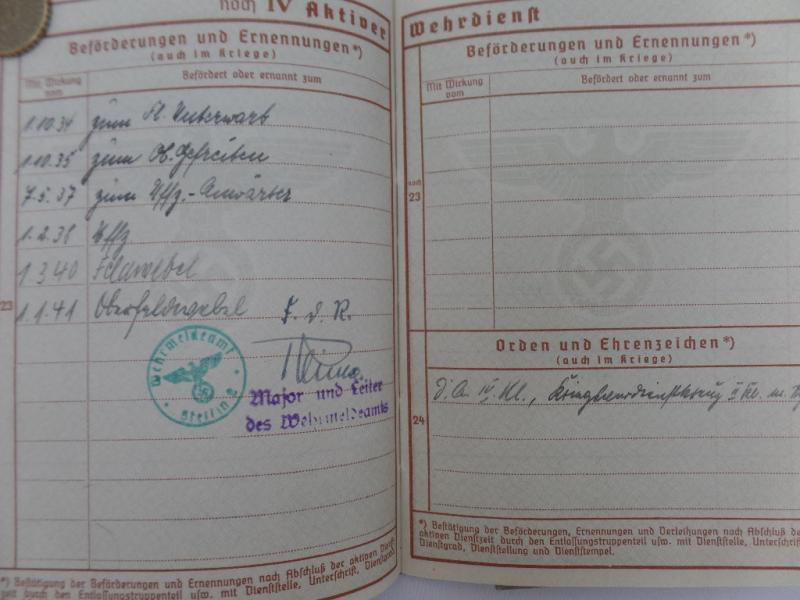 noch IV Aktiver
Beförderungen und Ernennungen*)
(auch im Kriege)
Mit Wirkung vom
Befördert oder ernannt zum
1.10.34 zum
1.10.35 zum Ob. Gefreiten
7.5.37 zum Uffz.-Anwärter
1.2.38 Uffz
1 3.40 Feldwebel
1.1.41 Oberfeldwebel F. d. R.
23
Wehrmeldeamt
Stettin
Major und Leiter
des Wehrmeldeamts
*) Bestätigung der Beförderungen und Ernennungen nach Abschluß der aktiven Dienst-
zeit durch den Entlassungstruppenteil usw. mit Dienststelle, Unterschrift, Dienstgrad,
Wehrdienst
Beförderungen und Ernennungen*)
(auch im Kriege)
Mit Wirkung vom
Befördert oder ernannt zum
noch
23
Orden und Ehrenzeichen*)
(auch im Kriege)
D.A. IV. Kl., Kriegsverdienstkreuz II Kl. m.
24
*) Bestätigung der Beförderungen, Ernennungen und Verleihungen nach Abschluß de
aktiven Dienstzeit durch den Entlassungstruppenteil usw. mit Dienststelle, Unterschrif
Dienstgrad, Dienststellung und Dienststempel.